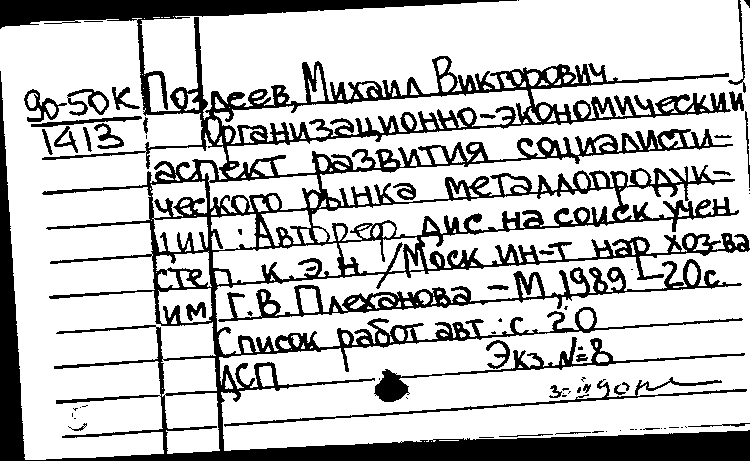 90-50К Поздеев, Михаил Викторович.
1413 Организационно-экономический
аспект развития социалисти-
ческого рынка металлопродук-
ции: Автореф. дис. на соиск. учен.
степ. к.э.н. /Моск. ин-т нар. хоз-ва
им. Г.В. Плеханова. - М, 1989 - 20с.
Список работ авт.: с. 20
ДСП Экз. №8
5